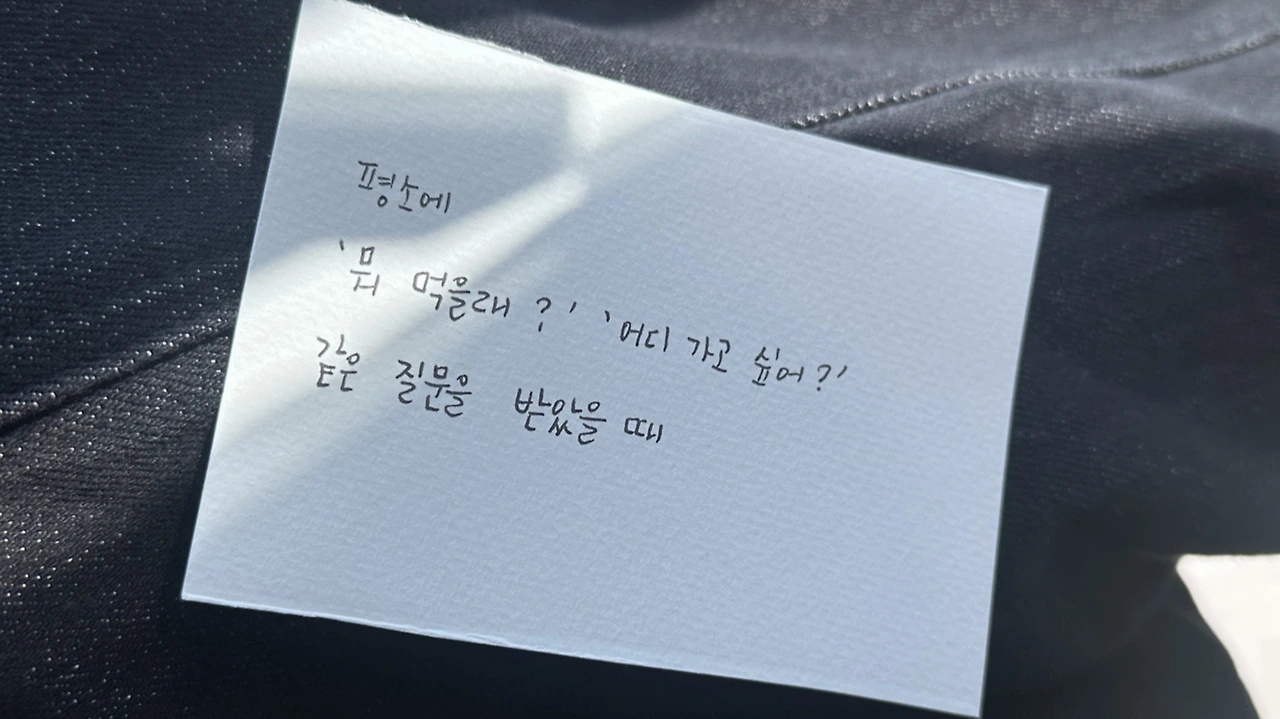 평소에
'뭐 먹을래?' '어디 가고 싶어?'
같은 질문을 받았을 때